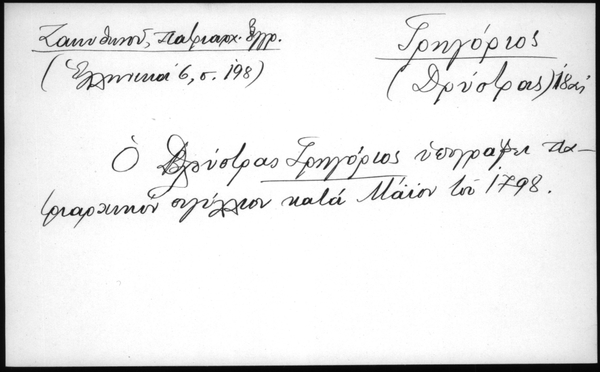 Ζακυθηνοῦ, Πατριαρχ. Ἔγγρ.
(Ἑλληνικά 6, σ. 198)
Γρηγόριος
(Δρύστρας) 18 αἰ
Ὁ Δρύστρας Γρηγόριος ὑπογράφει πα-
τριαρχικόν σιγίλλιον κατά Μάϊον τοῦ 1798.